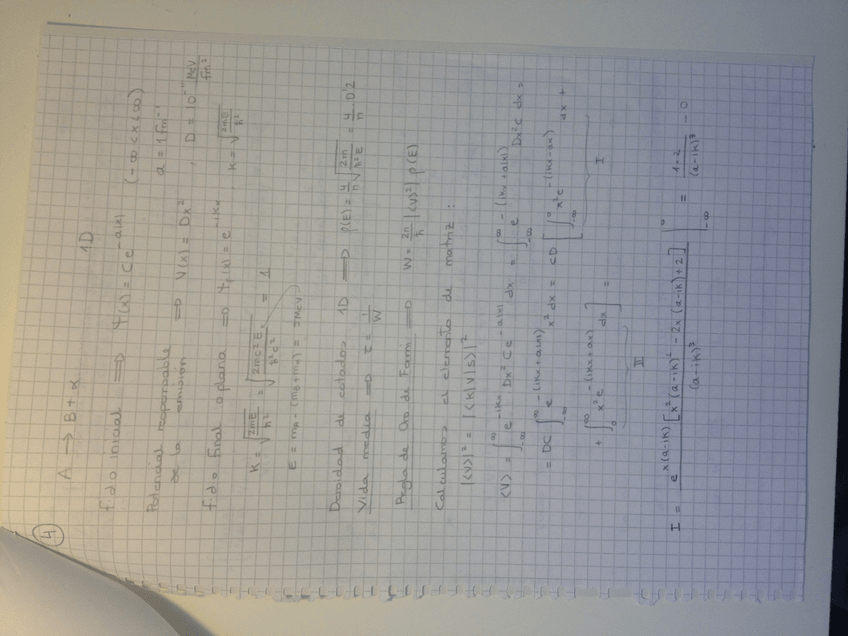 4
A ⟹ B + α 1D
f. do inicial ⟹ Ψ(x) = C e^{-a|x|} (-∞ < x < ∞)
a = 1 fm⁻¹
Potencial responsable
de la emisión ⟹ V(x) = Dx² , D = 10 MeV/fm²
f. do final o plana ⟹ Ψ_f(x) = e^{-ikx} , K = √(2mE/ħ²)
K = √(2mE/ħ²) = √(2mc²E/ħ²c²) = 1
E = m_A - (m_B + m_α) = MeV
Densidad de estados 1D ⟹ ρ(E) = √(2m/ħ²E) =
Vida media ⟹ τ = 1/W
Regla de Oro de Fermi ⟹ W = 2π/ħ |⟨V⟩²| ρ(E)
Calculamos el elemento de matriz :
|⟨V⟩|² = |⟨K|V|S⟩|²
⟨V⟩ = ∫_{-∞}^{∞} e^{-ikx} Dx² C e^{-a|x|} dx = ∫_{-∞}^{∞} e^{-(ikx+a|x|)} Dx² C dx =
= DC ∫_{-∞}^{∞} e^{-(ikx+a|x|)} x² dx = CD [ ∫_{-∞}^{0} x² e^{-(ikx-ax)} dx +
I
+ ∫_{0}^{∞} x² e^{-(ikx+ax)} dx ] =
II
I = e^{x(a-ik)} [x²(a-ik)² - 2x(a-ik) + 2] / (a-ik)³ |_{-∞}^{0} = 1·2/(a-ik)³ - 0